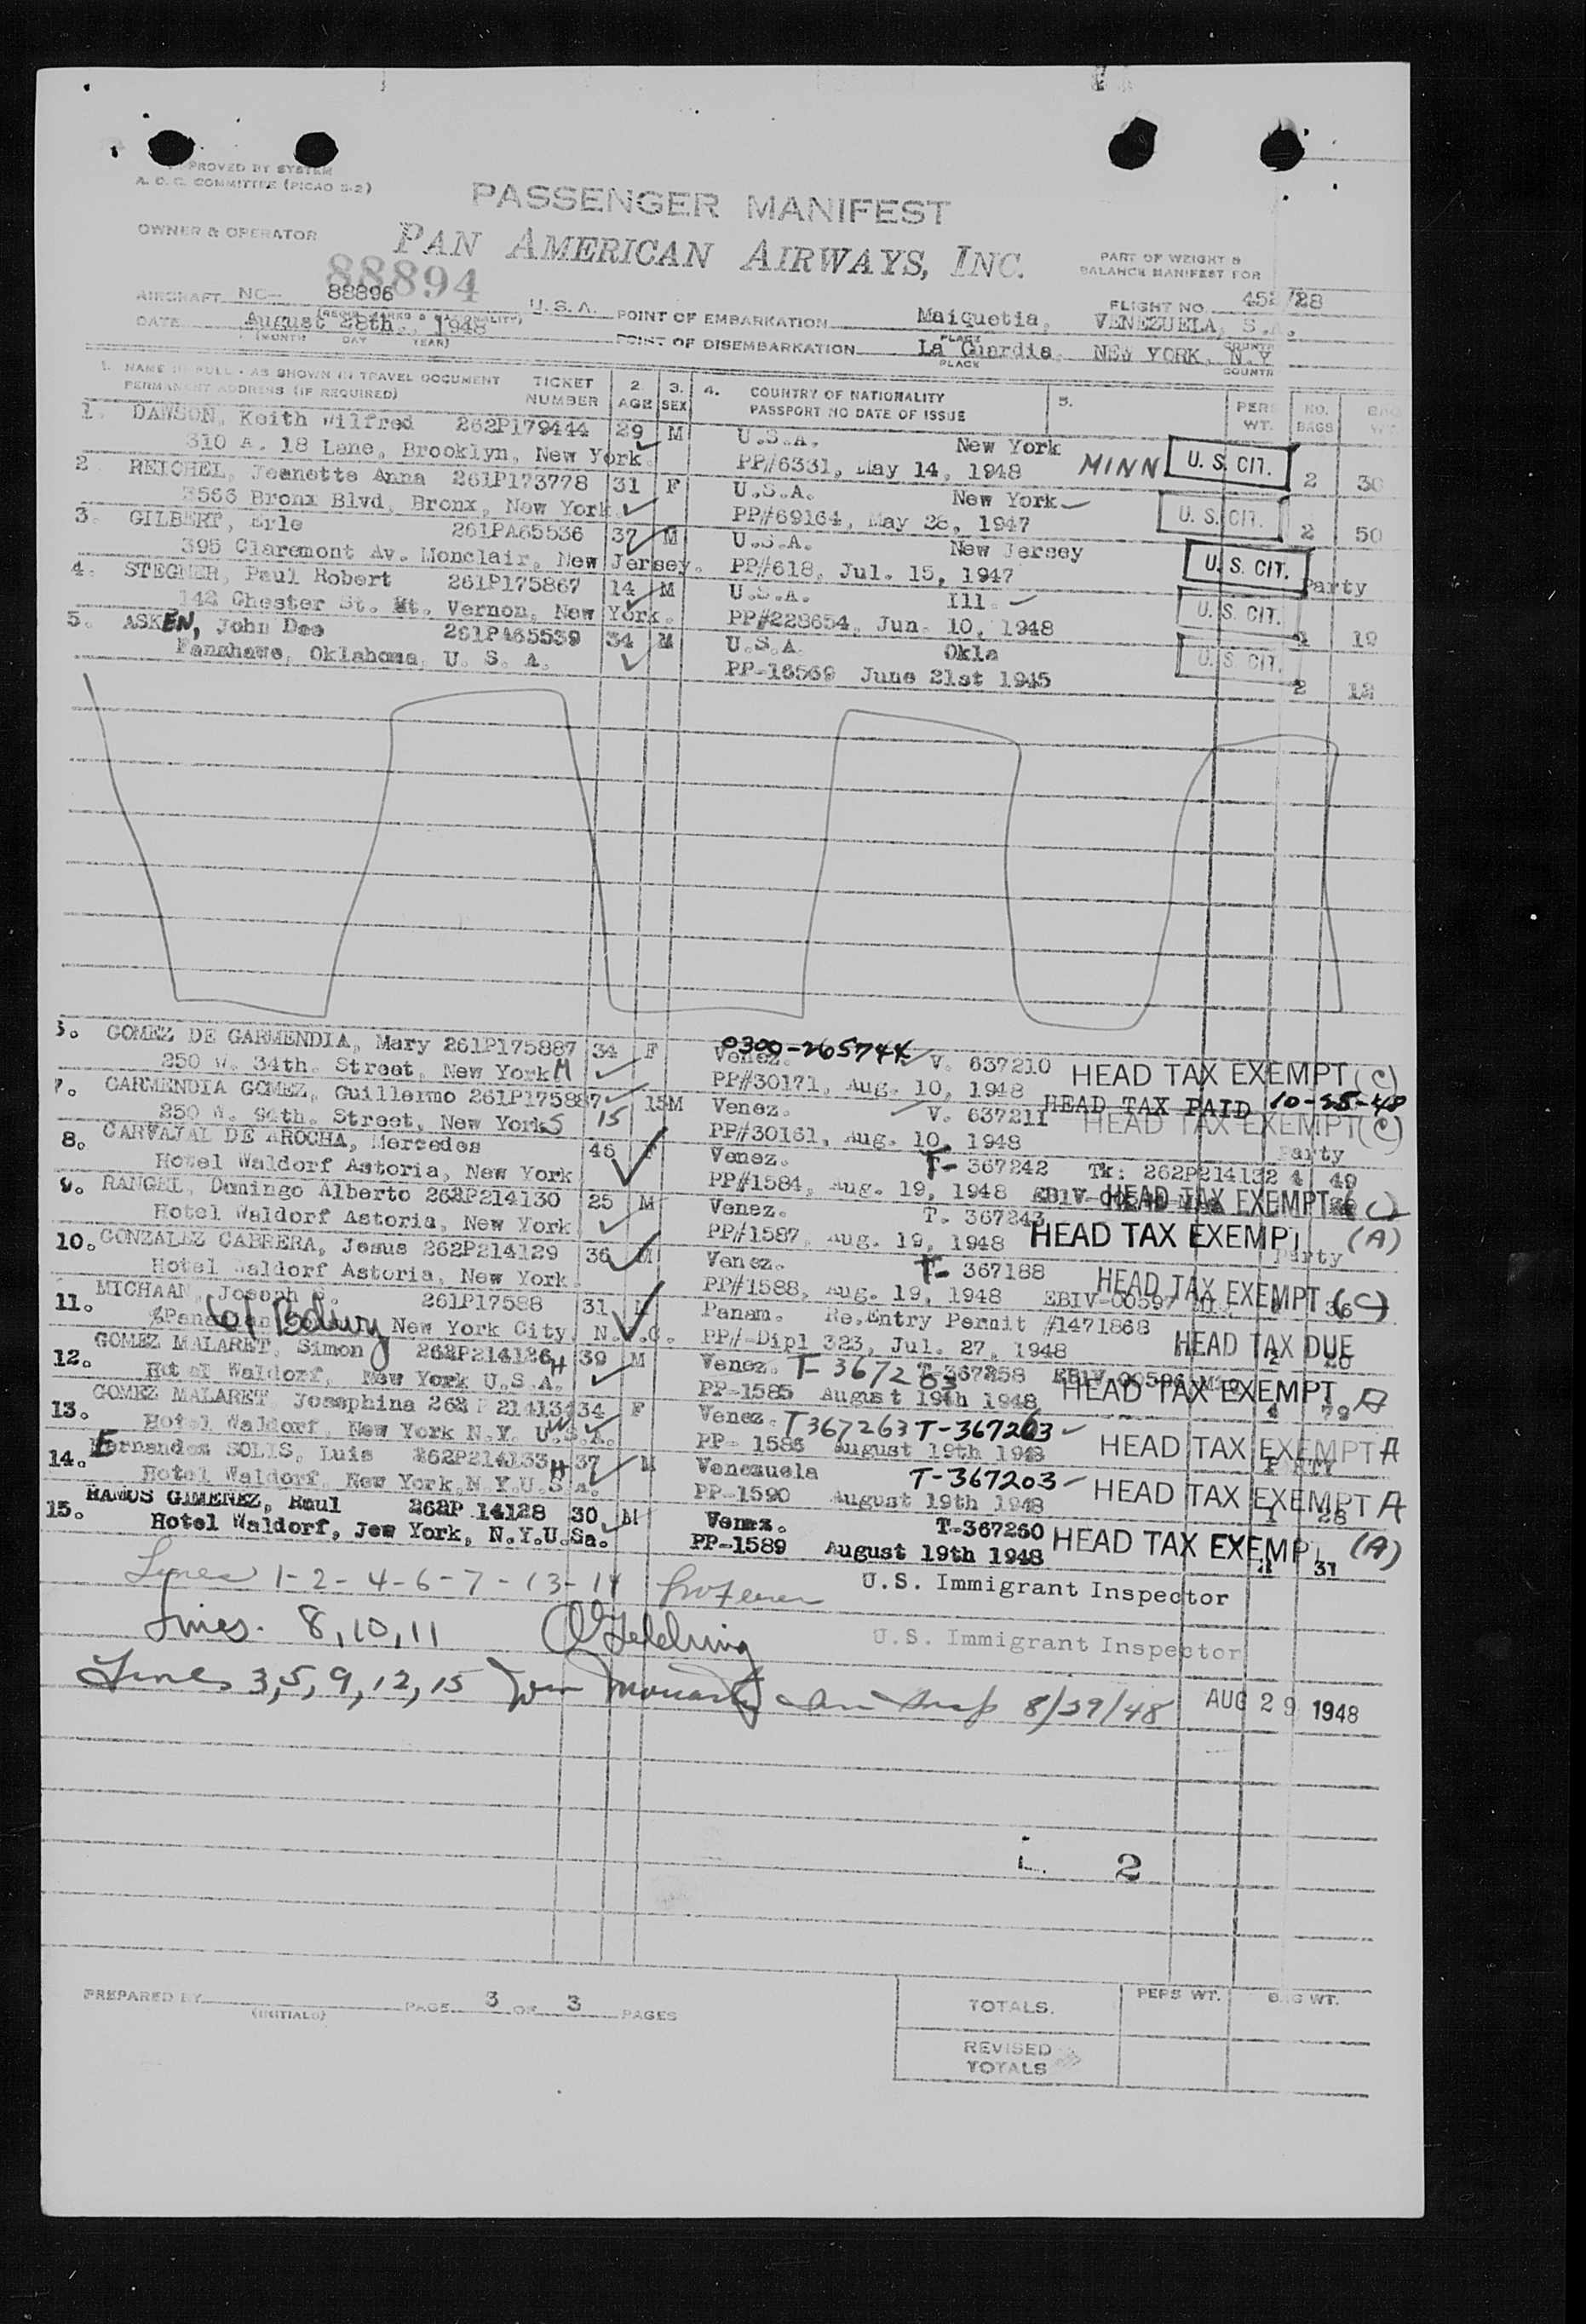 APPROVED BY SYSTEM
A. O. C. COMMITTEE (PICAO S-2)
PASSENGER MANIFEST
OWNER & OPERATOR PAN AMERICAN AIRWAYS, INC.
PART OF WEIGHT &
BALANCE MANIFEST FOR
88894
AIRCRAFT NC- 88896 U.S.A.
FLIGHT NO. 452/28
DATE August 28th., 1948
(MONTH DAY YEAR)
POINT OF EMBARKATION Maiquetia, VENEZUELA, S.A.
PLACE COUNTRY
POINT OF DISEMBARKATION La Guardia, NEW YORK, N.Y
PLACE COUNTR
1. NAME IN FULL - AS SHOWN IN TRAVEL DOCUMENT TICKET 2 3. 4. COUNTRY OF NATIONALITY 5. PERS NO.
PERMANENT ADDRESS (IF REQUIRED) NUMBER AGE SEX PASSPORT NO DATE OF ISSUE WT. BAGS
1. DAWSON, Keith Wilfred 262P179444 29 M U.S.A. New York
310 A. 18 Lane, Brooklyn, New York. PP#6331, May 14, 1948 MINN U. S. CIT. 2 30
2. REICHEL, Jeanette Anna 261P173778 31 F U.S.A. New York
3566 Bronx Blvd, Bronx, New York. PP#69164, May 28, 1947 U. S. CIT. 2 50
3. GILBERT, Erle 261PA65536 37 M U.S.A. New Jersey
395 Claremont Av. Monclair, New Jersey. PP#618, Jul. 15, 1947 U. S. CIT. Party
4. STEGNER, Paul Robert 261P175867 14 M U.S.A. Ill.
142 Chester St. Mt. Vernon, New York. PP#228654, Jun. 10, 1948 U. S. CIT. 1 19
5. ASKEN, John Dee 261PA65539 34 M U.S.A. Okla
Fanshawe, Oklahoma, U. S. A. PP-16569 June 21st 1945 U. S. CIT. 2 12
6. GOMEZ DE GARMENDIA, Mary 261P175887 34 F Venez. 0300-265744 V. 637210
250 W. 34th. Street, New York M PP#30171, Aug. 10, 1948 HEAD TAX EXEMPT (C)
7. GARMENDIA GOMEZ, Guillermo 261P175887 15M Venez. V. 637211 HEAD TAX PAID 10-25-48
250 W. 94th. Street, New York S 15 PP#30161, Aug. 10, 1948 HEAD TAX EXEMPT (C)
Party
8. CARVAJAL DE AROCHA, Mercedes 46 F Venez. T- 367242 Tk: 262P214132 4 49
Hotel Waldorf Astoria, New York PP#1584, Aug. 19, 1948 HEAD TAX EXEMPT (C)
9. RANGEL, Domingo Alberto 262P214130 25 M Venez. T. 367243
Hotel Waldorf Astoria, New York PP#1587, Aug. 19, 1948 HEAD TAX EXEMPT (A)
Party
10. GONZALEZ CABRERA, Jesus 262P214129 36 M Venez. T- 367188
Hotel Waldorf Astoria, New York. PP#1588, Aug. 19, 1948 EBIV-00597 HEAD TAX EXEMPT (C) 36
11. MICHAAN, Joseph 261P17588 31 M Panam. Re.Entry Permit #1471868
New York City, N.Y.C. PP#-Dipl 323, Jul. 27, 1948 HEAD TAX DUE
12. GOMEZ MALARET, Simon 262P214126 H 39 M Venez. T-367258
Hotel Waldorf, New York U.S.A. PP-1585 August 19th 1948 HEAD TAX EXEMPT A
13. GOMEZ MALARET, Josephina 262P214134 34 F Venez. T367263 T-367263
Hotel Waldorf, New York N.Y. U.S.A. PP- 1586 August 19th 1948 HEAD TAX EXEMPT A
14. Fernandez SOLIS, Luis 262P214133 H 37 M Venezuela T-367203
Hotel Waldorf, New York,N.Y.U.S.A. PP-1590 August 19th 1948 HEAD TAX EXEMPT A
1 28
15. RAMOS GIMENEZ, Raul 262P 14128 30 M Venez. T-367260
Hotel Waldorf, Jew York, N.Y.U.Sa. PP-1589 August 19th 1948 HEAD TAX EXEMPT (A)
31
Lines 1-2-4-6-7-13-14 U.S. Immigrant Inspector
Lines. 8,10,11 U.S. Immigrant Inspector
Lines 3,5,9,12,15 8/29/48 AUG 29 1948
2
PREPARED BY (INITIALS) PAGE 3 OF 3 PAGES
TOTALS. PERS WT. BAG WT.
REVISED
TOTALS